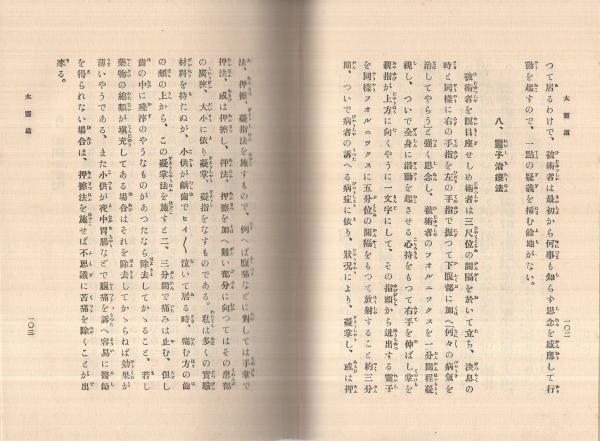 太靈道
一〇二
つて居るわけで、被術者は最初から何事も知らず思念を感應して行
動を起すので、一點の疑義を挿む餘地がない。
八、靈子治療法
被術者を瞑目座せしめ術者は三尺位の間隔を於いて立ち、決息の
時と同樣に右の手指を左の手指で握つて下腹部に加へ「何々の病氣を
治してやらう」と強く思念し、被術者のフオルニツクスを一分間程凝
視し、ついで全身に潜動を起させる心持をもつて右手を伸ばし掌を
親指が上方に向くやうに一文字にして、その指頭から迸出する靈子
を同樣フオルニツクスに五分位の間隔をもつて放射すること約三分
間、ついで病者の訴へる病症に依り、狀況により、凝掌し、或は押
法、押擦、凝指法を施すもので、例へば腹痛などに對しては手掌で
押法、或は押擦し、押法、押擦を加へ難い部分に向つてはその患部
の廣狹、大小に依り凝掌、凝指をなすものである。私は多くの實驗
材料を持たぬが、小供が齲齒でヒイ〱泣いて居る時、痛む方の齒
の頰の上から、この凝掌法を施すと二、三分間で痛みは止む、但し
齒の中に殘滓のやうなものがあつたなら除去してかゝること、若し
藥物の綿類が塡充してある場合はそれを除去してかゝらねば効果が
薄いやうである、また小供が夜中胃腸などで腹痛を訴へ容易に醫師
を得られない場合は、押擦法を施せば不思議に苦痛を除くことが出
來る。
太靈道
一〇三